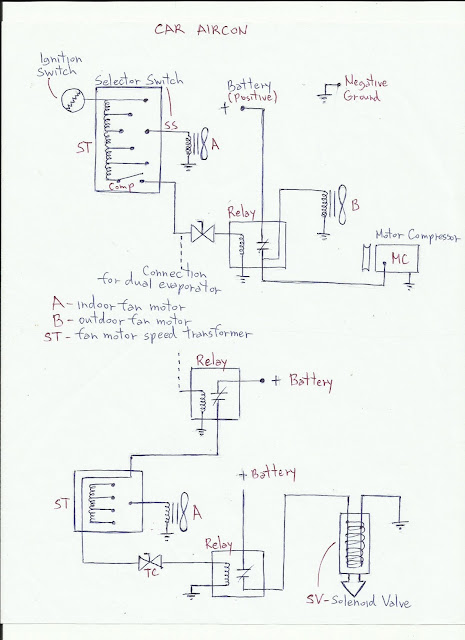 CAR AIRCON
Ignition
Switch
Selector Switch
Battery
(Positive)
+
Negative
Ground
SS
ST
A
Comp
Relay
B
Motor Compressor
MC
Connection
for dual evaporator
A - indoor fan motor
B - outdoor fan motor
ST - fan motor speed transformer
Relay
+ Battery
+ Battery
ST
A
Relay
TC
SV - Solenoid Valve